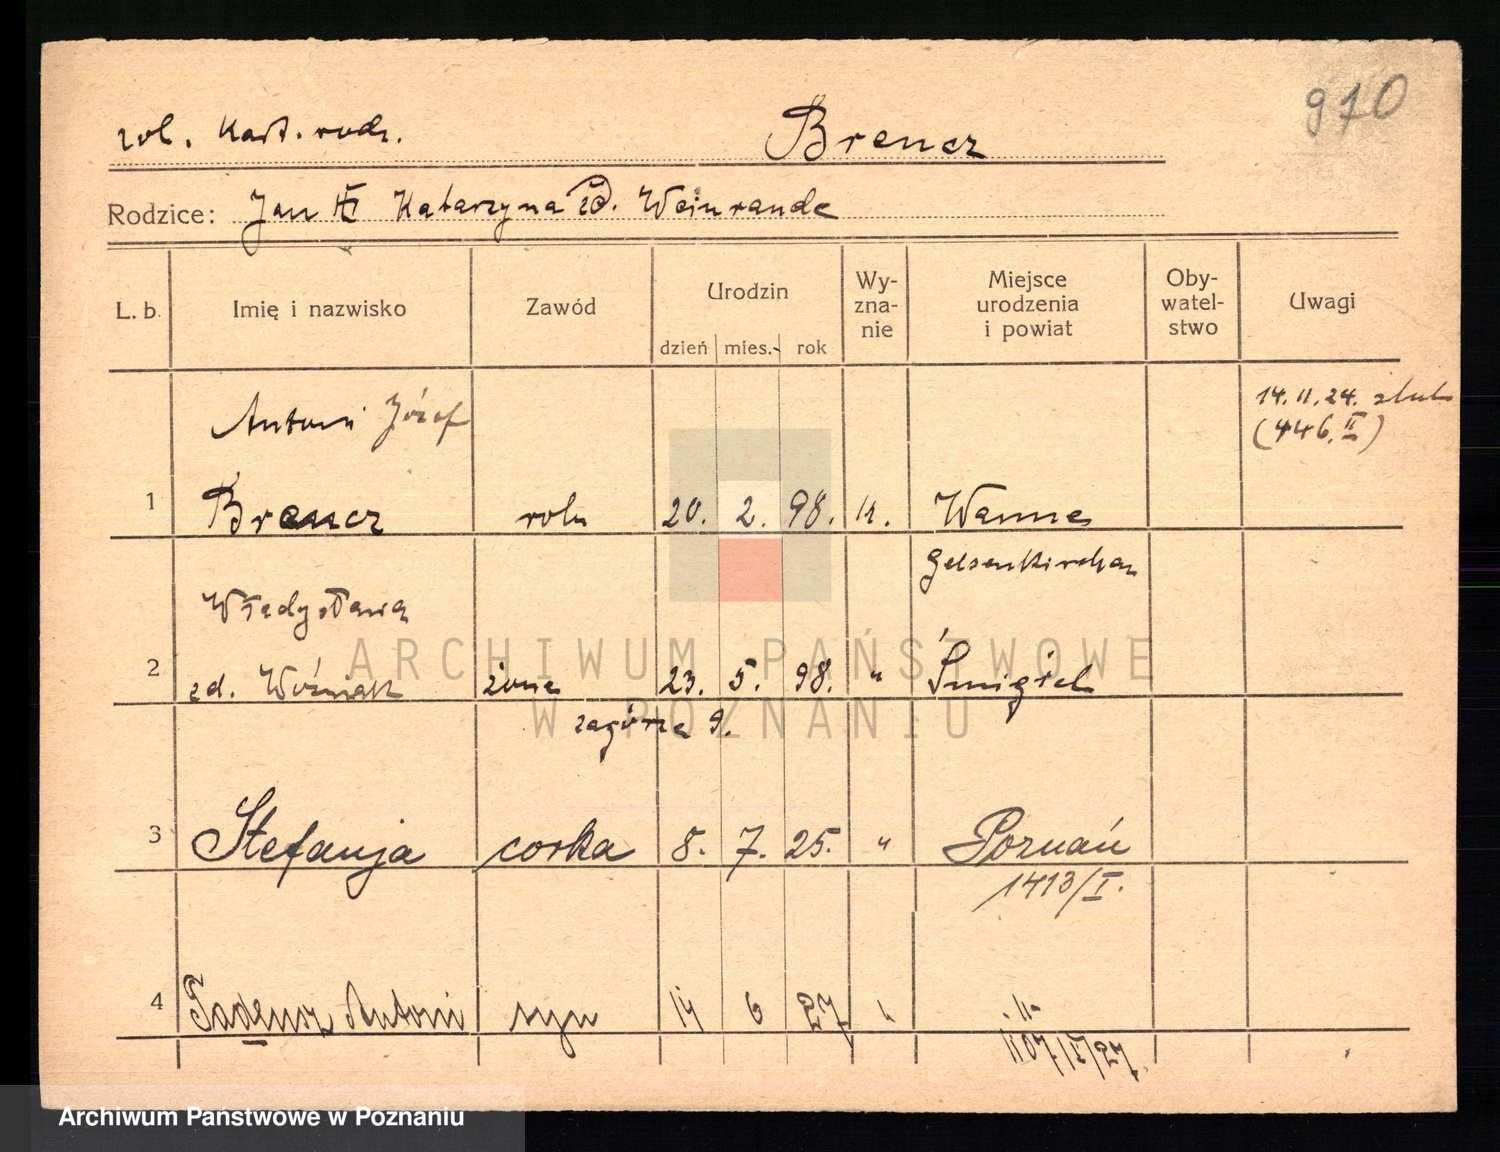 970
Brencz
Rodzice: Jan Katarzyna zd. Weinrande
L. b. Imię i nazwisko Zawód Urodzin dzień mies. rok Wy-zna-nie Miejsce urodzenia i powiat Oby-watel-stwo Uwagi
Antoni Józef 14. 11. 24. ślub
(446. II)
1 Brencz roln 20. 2. 98. k. Wanne
Gelsenkirchen
Władysława
2 zd. Woźniak żona 23. 5. 98. " Śmigiel
Zagórze 9.
3 Stefanja corka 8. 7. 25. " Poznań
1413/I.
4 Tadeusz Antoni syn 14 6 27 " "
1107/I/27
ARCHIWUM PAŃSTWOWE
W POZNANIU
Archiwum Państwowe w Poznaniu